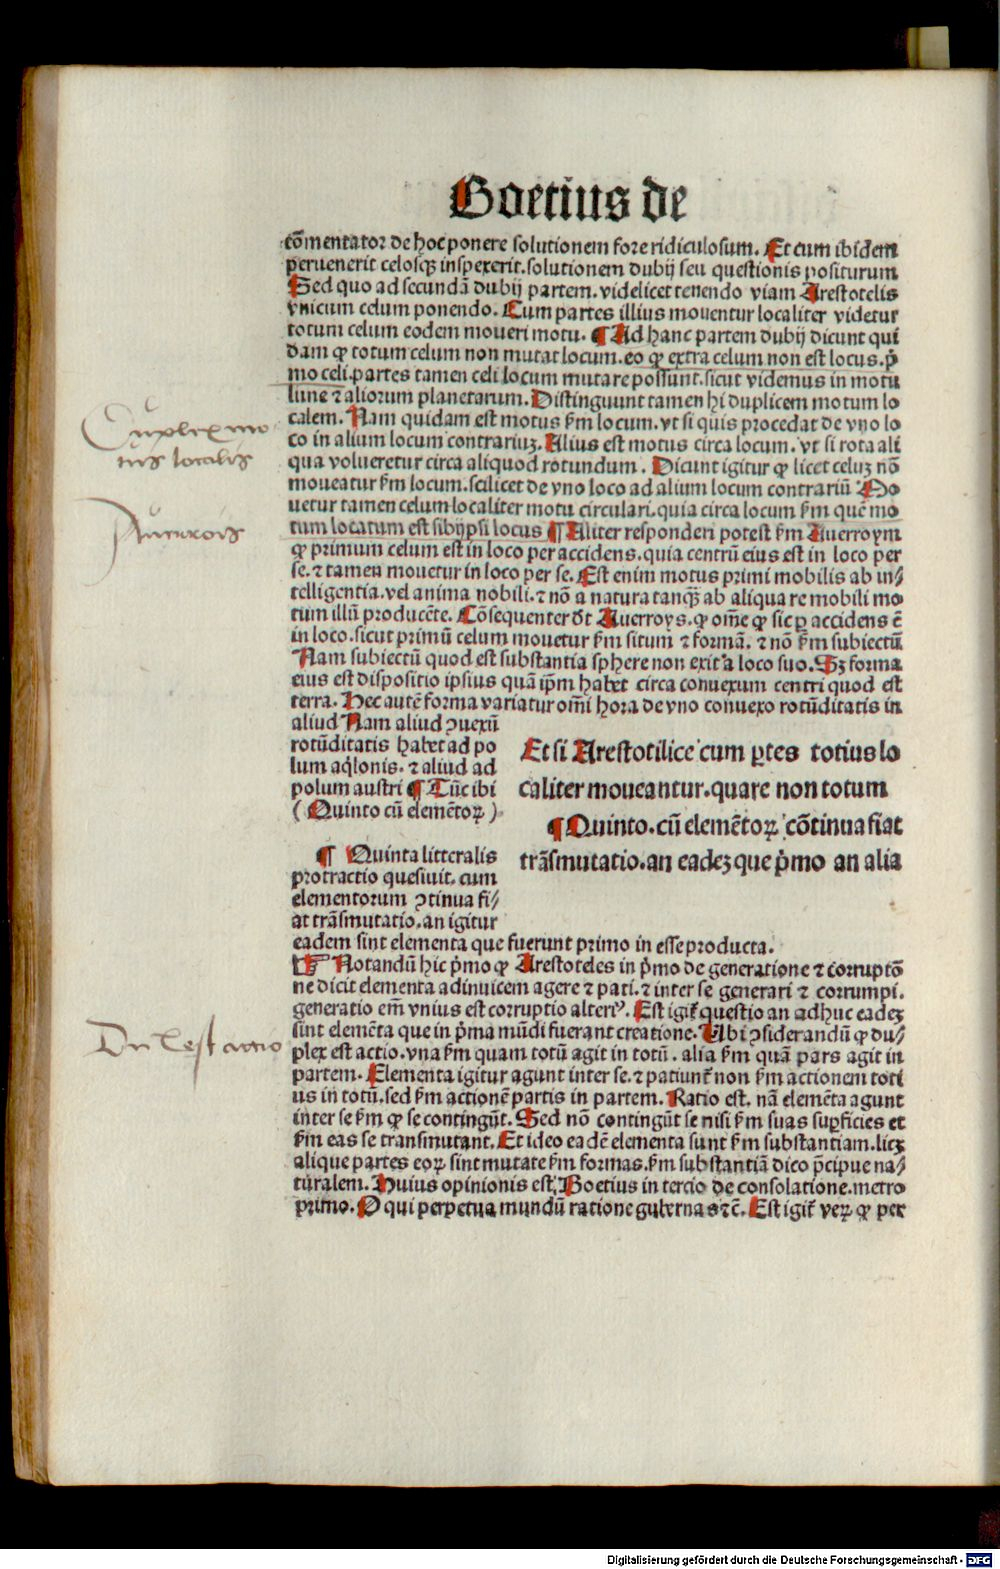 Boetius de
cōmentator de hoc ponere solutionem fore ridiculosum. Et cum ibidem
peruenerit celosqꝫ inspexerit. solutionem dubij seu questionis positurum
Sed quo ad secundā dubij partem. videlicet tenendo viam Arestotelis
vnicum celum ponendo. Cum partes illius mouentur localiter videtur
totum celum eodem moueri motu. ¶ Ad hanc partem dubij dicunt qui
dam ꝙ totum celum non mutat locum. eo ꝙ extra celum non est locus. p̄
mo celi. partes tamen celi locum mutare possunt. sicut videmus in motu
lune ⁊ aliorum planetarum. Distinguunt tamen hi duplicem motum lo
calem. Nam quidam est motus ẜm locum. vt si quis procedat de vno lo
co in alium locum contrariuꝫ. Alius est motus circa locum. vt si rota ali
qua volueretur circa aliquod rotundum. Dicunt igitur ꝙ licet celuꝫ nō
moueatur ẜm locum. scilicet de vno loco ad alium locum contrariū Mo
uetur tamen celum localiter motu circulari. quia circa locum ẜm quē mo
tum locatum est sibijpsi locus ¶ Aliter responderi potest ẜm Auerroym
ꝙ primum celum est in loco per accidens. quia centrū eius est in loco per
se. ⁊ tamen mouetur in loco per se. Est enim motus primi mobilis ab in⸗
telligentia. vel anima nobili. ⁊ nō a natura tanqꝫ ab aliqua re mobili mo
tum illū producēte. Cōsequenter dt̄ Auerroys. ꝙ om̄e ꝙ sic ꝑ accidens ē
in loco. sicut primū celum mouetur ẜm situm ⁊ formā. ⁊ nō ẜm subiectū
Nam subiectū quod est substantia sphere non exit a loco suo. Sꝫ forma
eius est dispositio ipsius quā ip̄m habet circa conuexum centri quod est
terra. Hec autē forma variatur om̄i hora de vno conuexo rotūditatis in
aliud Nam aliud ꝯuexū
rotūditatis habet ad po
lum aq̇lonis. ⁊ aliud ad
polum austri ¶ Tūc ibi
(Quinto cū elemētoꝝ)
Et si Arestotilice cum ꝑtes totius lo
caliter moueantur. quare non totum
¶ Quinto. cū elemētoꝝ cōtinua fiat
trāsmutatio. an eadeꝫ que p̄mo an alia
¶ Quinta litteralis
protractio quesiuit. cum
elementorum ꝯtinua fi⸗
at trāsmutatio. an igitur
eadem sint elementa que fuerunt primo in esse producta.
Notandū hic p̄mo ꝙ Arestoteles in p̄mo de generatione ⁊ corruptō
ne dicit elementa adinuicem agere ⁊ pati. ⁊ inter se generari ⁊ corrumpi.
generatio em̄ vnius est corruptio alterꝰ. Est igit̄ questio an adhuc eadeꝫ
sint elemēta que in p̄ma mūdi fuerant creatione. Vbi ꝯsiderandū ꝙ du⸗
plex est actio. vna ẜm quam totū agit in totū. alia ẜm quā pars agit in
partem. Elementa igitur agunt inter se. ⁊ patiunt̄ non ẜm actionem toti
us in totū. sed ẜm actionē partis in partem. Ratio est. nā elemēta agunt
inter se ẜm ꝙ se contingūt. Sed nō contingūt se nisi ẜm suas suꝑficies et
ẜm eas se transmutant. Et ideo eadē elementa sunt ẜm substantiam. licꝫ
alique partes eoꝝ sint mutate ẜm formas. ẜm substantiā dico p̄cipue na⸗
turalem. Huius opinionis est Boetius in tercio de consolatione. metro
primo. O qui perpetua mundū ratione gubernas ⁊c̄. Est igit̄ veꝝ ꝙ per
Duplex mo
tus localis
Auerrois
Duplex est actio
Digitalisierung gefördert durch die Deutsche Forschungsgemeinschaft - DFG